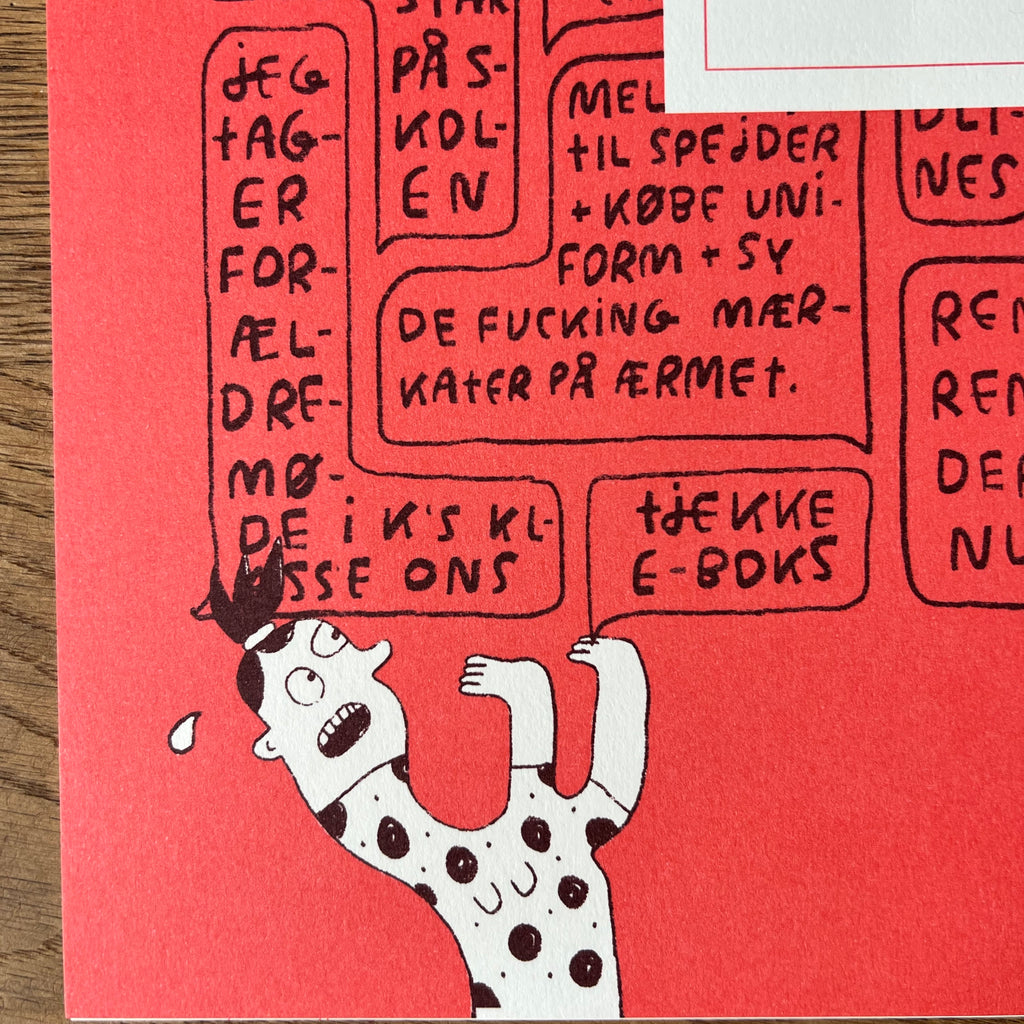 JEG
TAG-
ER
FOR-
ÆL-
DRE-
MØ-
DE I K'S KL-
ASSE ONS
PÅ S-
KOL-
EN
TIL SPEJDER
+ KØBE UNI-
FORM + SY
DE FUCKING MÆR-
KATER PÅ ÆRMET.
TJEKKE
E-BOKS
NES